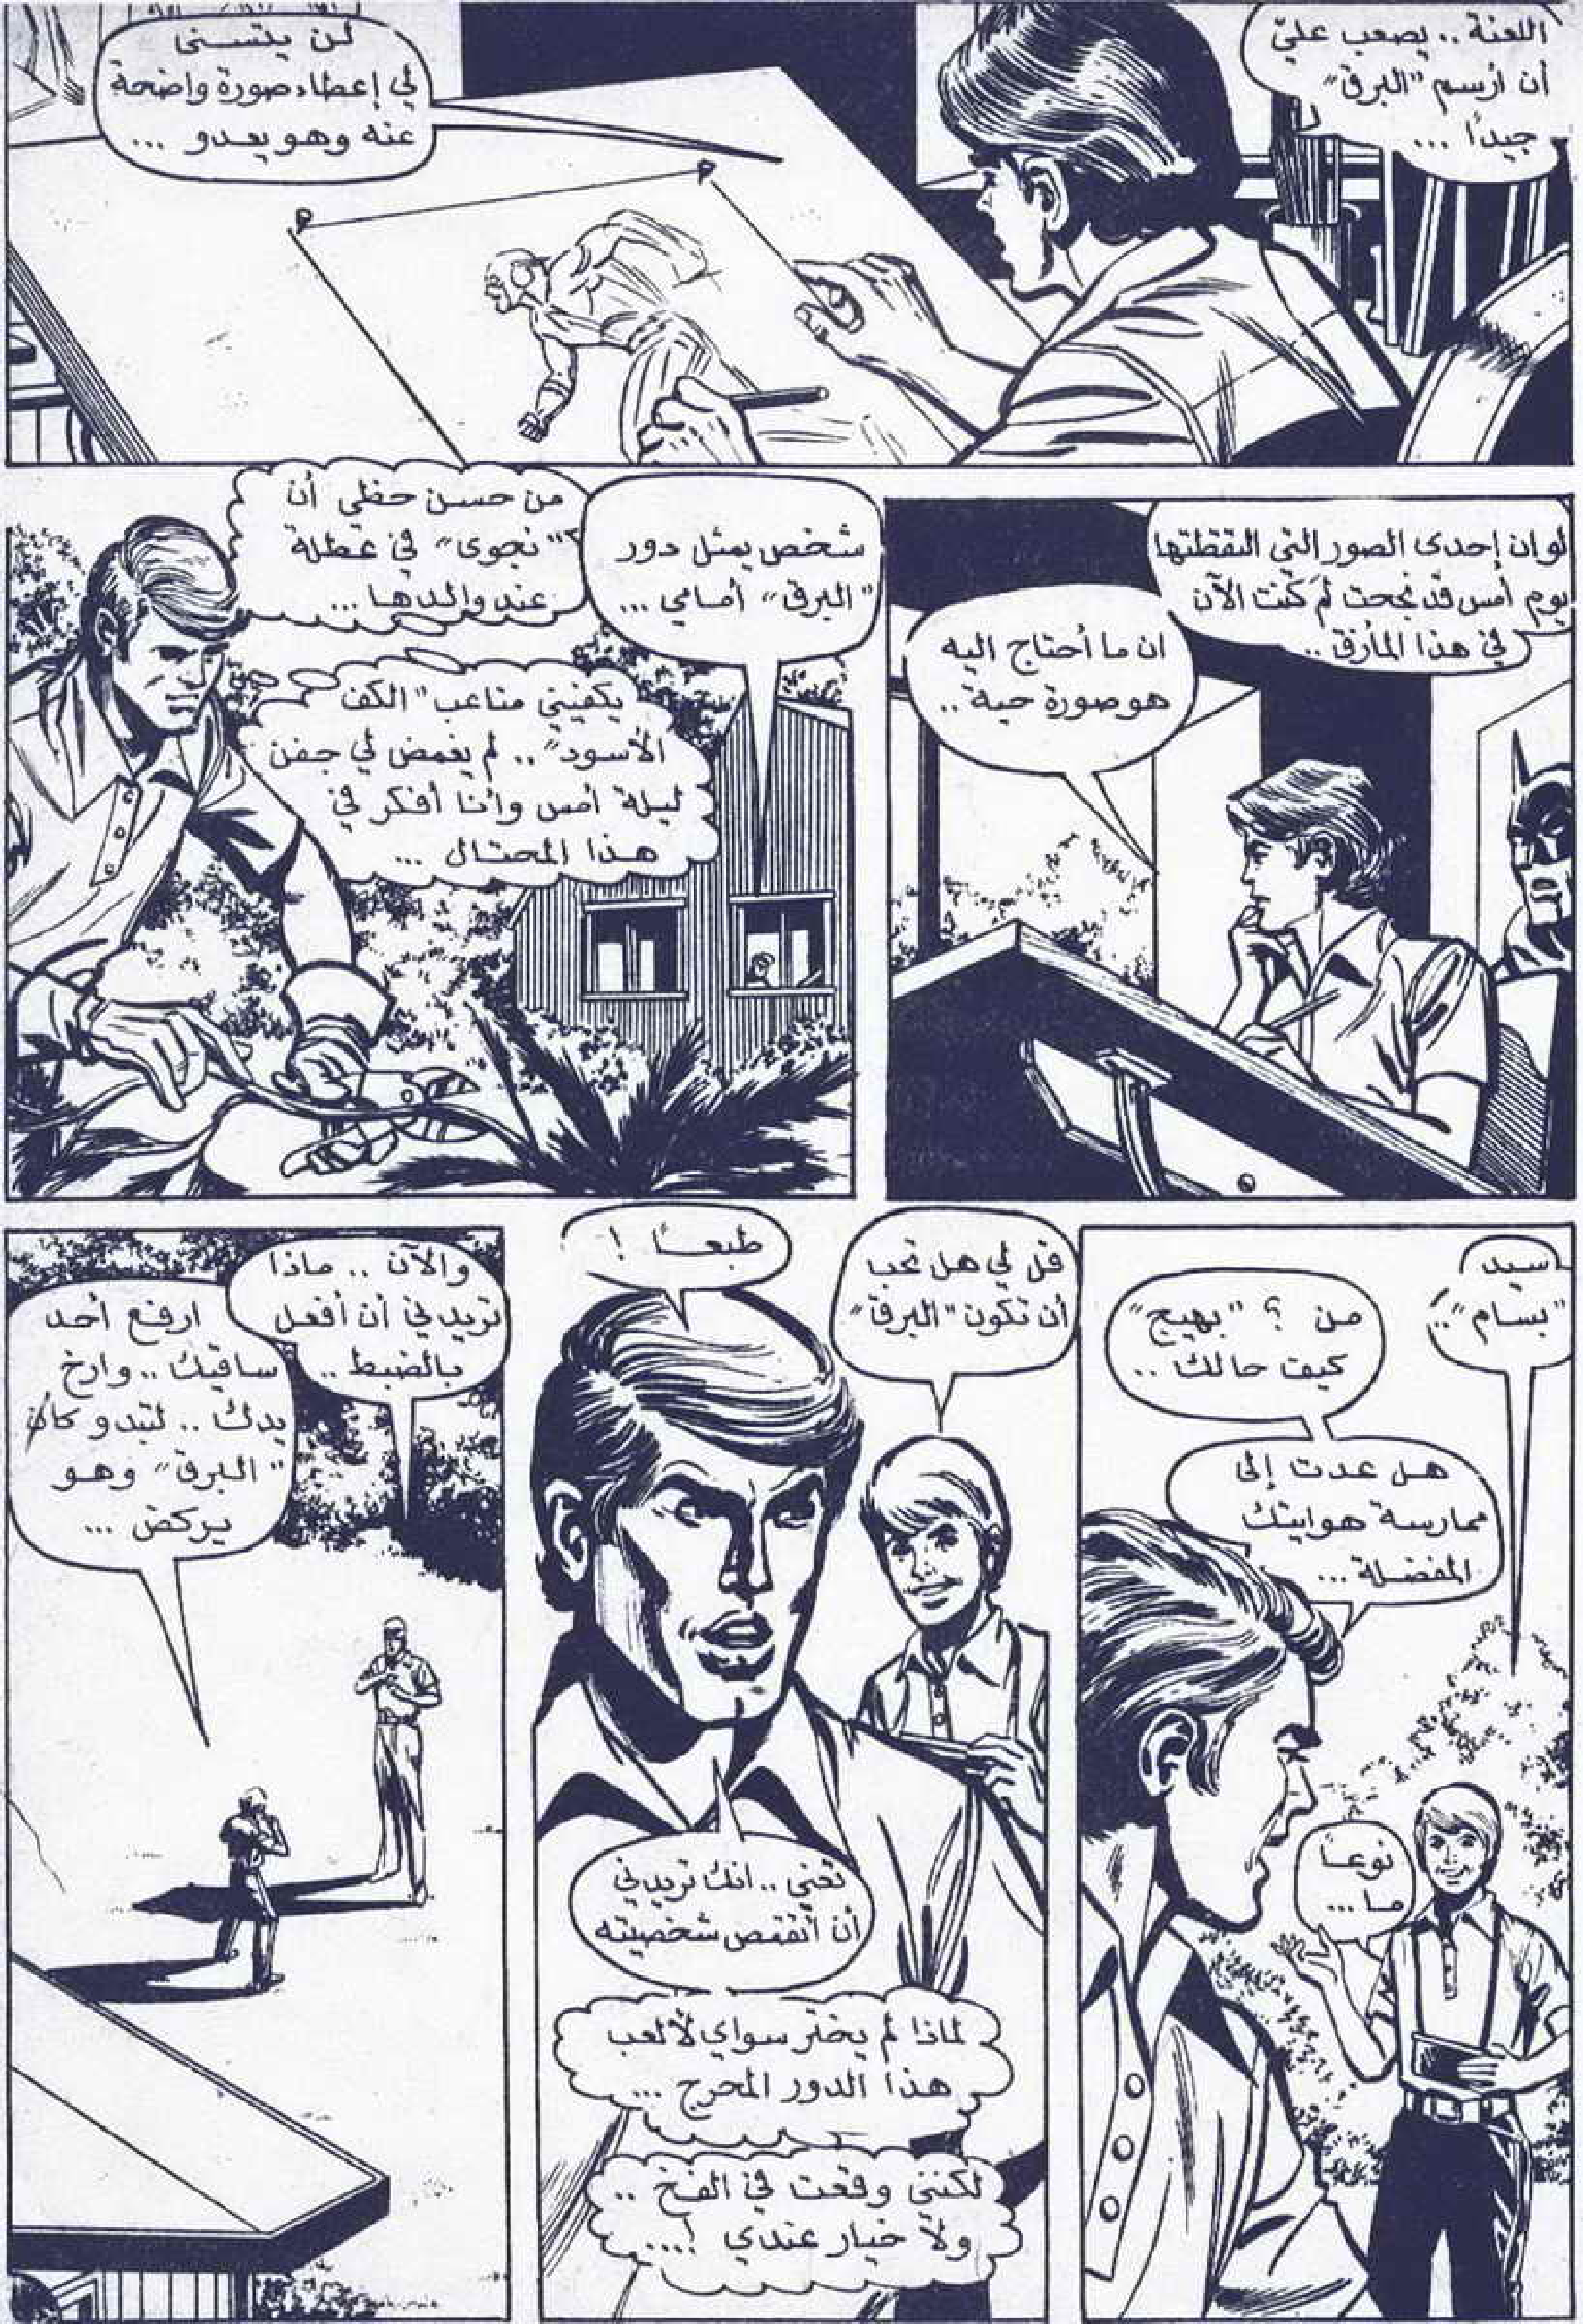 اللعنة .. يصعب عليّ
أن أرسم "البرق"
جيدًا ...
لن يتسنى
لي إعطاء صورة واضحة
عنه وهو يعدو ...
لو ان إحدى الصور التي التقطتها
يوم أمس قد نجحت لم كنت الآن
في هذا المأزق ..
ان ما أحتاج اليه
هو صورة حية ..
شخص يمثل دور
"البرق" أمامي ...
من حسن حظي أن
"نجوى" في عطلة
عند والدها ...
يكفيني متاعب "الكف
الأسود" .. لم يغمض لي جفن
ليلة أمس وأنا أفكر في
هذا المحتال ...
سيد
"بسام" ..
من ؟ "بهيج"
كيف حالك ..
هل عدت إلى
ممارسة هوايتك
المفضلة ...
نوعاً
ما ...
قل لي هل تحب
أن تكون "البرق"
طبعاً !
تعني .. انك تريدني
أن أتقمص شخصيته
لماذا لم يختر سواي لألعب
هذا الدور المحرج ...
لكنني وقعت في الفخ ..
ولا خيار عندي !...
والآن .. ماذا
تريدني أن أفعل
بالضبط ..
ارفع أحد
ساقيك .. وارخ
يدك .. لتبدو كأن
"البرق" وهو
يركض ...